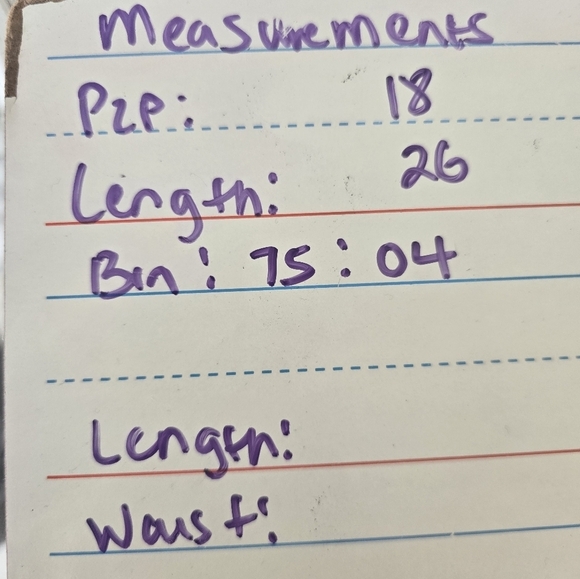 Measurements
P2P: 18
Length: 26
Bin: 75:04
Length:
Waist: